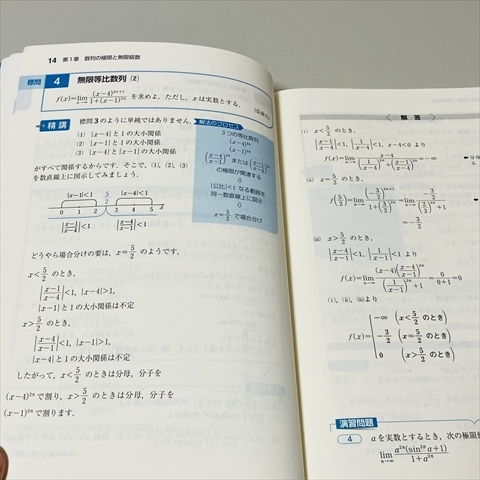 14 第1章 数列の極限と無限級数
標問 4 無限等比数列 (2)
f(x)=lim_{n→∞} (x-4)^{2n+1}/(1+(x-1)^{2n}) を求めよ。ただし，xは実数とする。
精講 標問3のように単純ではありません。
(1) |x-4|と1の大小関係
(2) |x-1|と1の大小関係
(3) |x-4|と|x-1|の大小関係
がすべて関係するからです。そこで，(1)，(2)，(3)
を数直線上に図示してみましょう。
解法のプロセス
3つの等比数列
(x-4)^{2n}
(x-1)^{2n}
((x-4)/(x-1))^{2n} または ((x-1)/(x-4))^{2n}
の極限が関連する
⇩
|公比|<1 なる範囲を
同一数直線上に図示
⇩
x=5/2 で場合分け
|x-1|<1 5/2 |x-4|<1
0 1 2 3 4 5 x
|(x-1)/(x-4)|<1 |(x-4)/(x-1)|<1
どうやら場合分けの要は，x=5/2 のようです。
x<5/2 のとき，
|(x-1)/(x-4)|<1，|x-4|>1，
|x-1|と1の大小関係は不定
x>5/2 のとき，
|(x-4)/(x-1)|<1，|x-1|>1，
|x-4|と1の大小関係は不定
したがって，x<5/2 のときは分母，分子を
(x-4)^{2n}で割り，x>5/2 のときは分母，分子を
(x-1)^{2n}で割ります。
〈 解 答 〉
(i) x<5/2 のとき，
|(x-1)/(x-4)|<1，|1/(x-4)|<1，x-4<0 より
f(x)=lim_{n→∞} (x-4)/((1/(x-4))^{2n}+((x-1)/(x-4))^{2n})=-∞
(ii) x=5/2 のとき，
f(5/2)=lim_{n→∞} (-3/2)^{2n+1}/(1+(3/2)^{2n})=lim_{n→∞} (-3/2)/((2/3)^{2n}+1)
=-3/2
(iii) x>5/2 のとき，
|(x-4)/(x-1)|<1，|1/(x-1)|<1 より
f(x)=lim_{n→∞} (x-4)((x-4)/(x-1))^{2n}/((1/(x-1))^{2n}+1)=0/(0+1)=0
(i)，(ii)，(iii)より
f(x)={ -∞ (x<5/2 のとき)
-3/2 (x=5/2 のとき)
0 (x>5/2 のとき)
演習問題
4 aを実数とするとき，次の極限
lim_{n→∞} a^{2n}(sin^{2n}a+1)/(1+a^{2n})